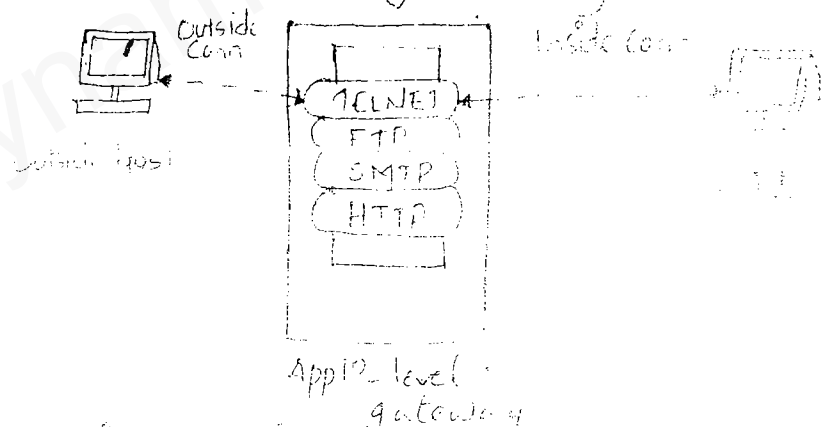 Outside
Conn
Inside Conn
TELNET
FTP
SMTP
HTTP
Outside host
Appln-level
gateway